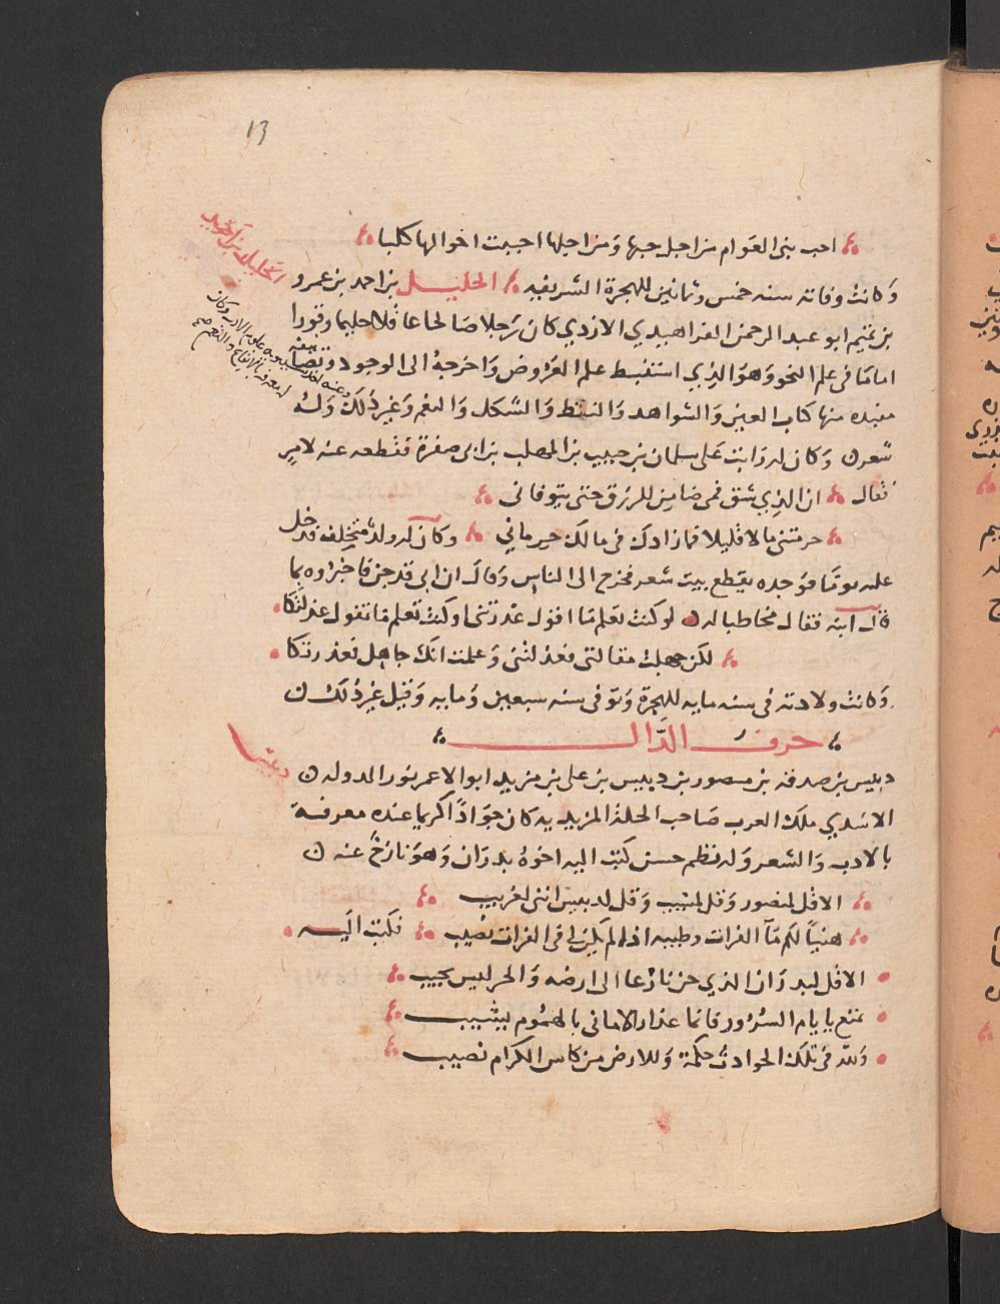 13
احب بنى العوام من اجل حبها ومن اجلها احببت اخوالها كلبا
وكانت وفاته سنه خمس وثمانين للهجرة الشريفه الخليل بن احمد بن عمرو
بن تميم ابو عبد الرحمن الفراهيدي الازدي كان رجلا صالحا عاقلا حليما وقورا
اماما فى علم النحو وهو الذي استنبط علم العروض واخرجه الى الوجود وتصانيفه
مفيده منها كتاب العين والشواهد والنقط والشكل والنغم وغير ذلك وله
شعر وكان له راتب على سلمان بن حبيب بن المهلب بن ابى صفرة فقطعه عنه لامر
فقال ان الذي شق فمى ضامن للرزق حتى يتوفانى
حرمتنى مالا قليلا فما زادك فى مالك حرمانى وكان له ولد متخلف فدخل
عليه يوما فوجده يقطع بيت شعر فخرج الى الناس وقال ان ابى قد جن فاخبروه بما
قال ابنه فقال مخاطبا له لو كنت تعلم ما اقول عذرتنى او كنت تعلم ما تقول عذلتكا
لكن جهلت مقالتى فعذلتنى وعلمت انك جاهل فعذرتكا
وكانت ولادته فى سنه مايه للهجرة وتوفى سنه سبعين ومايه وقيل غير ذلك
حرف الدال
دبيس بن صدقه بن منصور بن دبيس بن على بن مزيد ابو الاعر نور الدوله
الاسدي ملك العرب صاحب الحلة المزيديه كان جوادا كريما عنده معرفة
بالادب والشعر وله نظم حسن كتب اليه اخوه بدران وهو نازح عنه
الا قل لمنصور وقل لمسيب وقل لدبيس اننى لغريب
هنيا لكم مآ الفرات وطيبه اذا لم يكن لى فى الفرات نصيب فكتب اليه
الا قل لبدران الذي حن نازعا الى ارضه والحر ليس يخيب
تمتع بايام السرور فانما عذار الامانى بالهموم يشيب
ولله فى تلك الحوادث حكمة وللارض من كاس الكرام نصيب
الخليل بن احمد